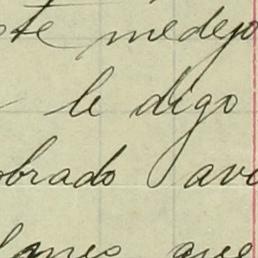 te medejo
le digo
obrado avi
que